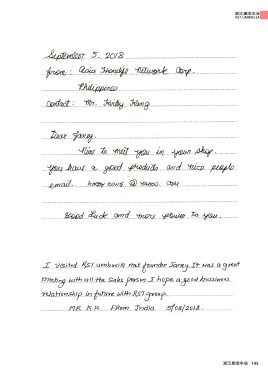 浙江星宝伞业
RST UMBRELLA
September 5, 2018
From: Asia Network Corp.
Philippines
Contact: Mr. Kirby Kong
Dear Janey,
Nice to meet you in your shop.
You have a good products and nice people
email. @ YAHOO. COM
Good Luck and more power to you.
I visited RST umbrella met founder Janey. It was a great
meeting with all the sales person I hope a good bussiness
relationship in future with RST group.
MR K.K FRom India 5/08/2018.
浙江星宝伞业 145